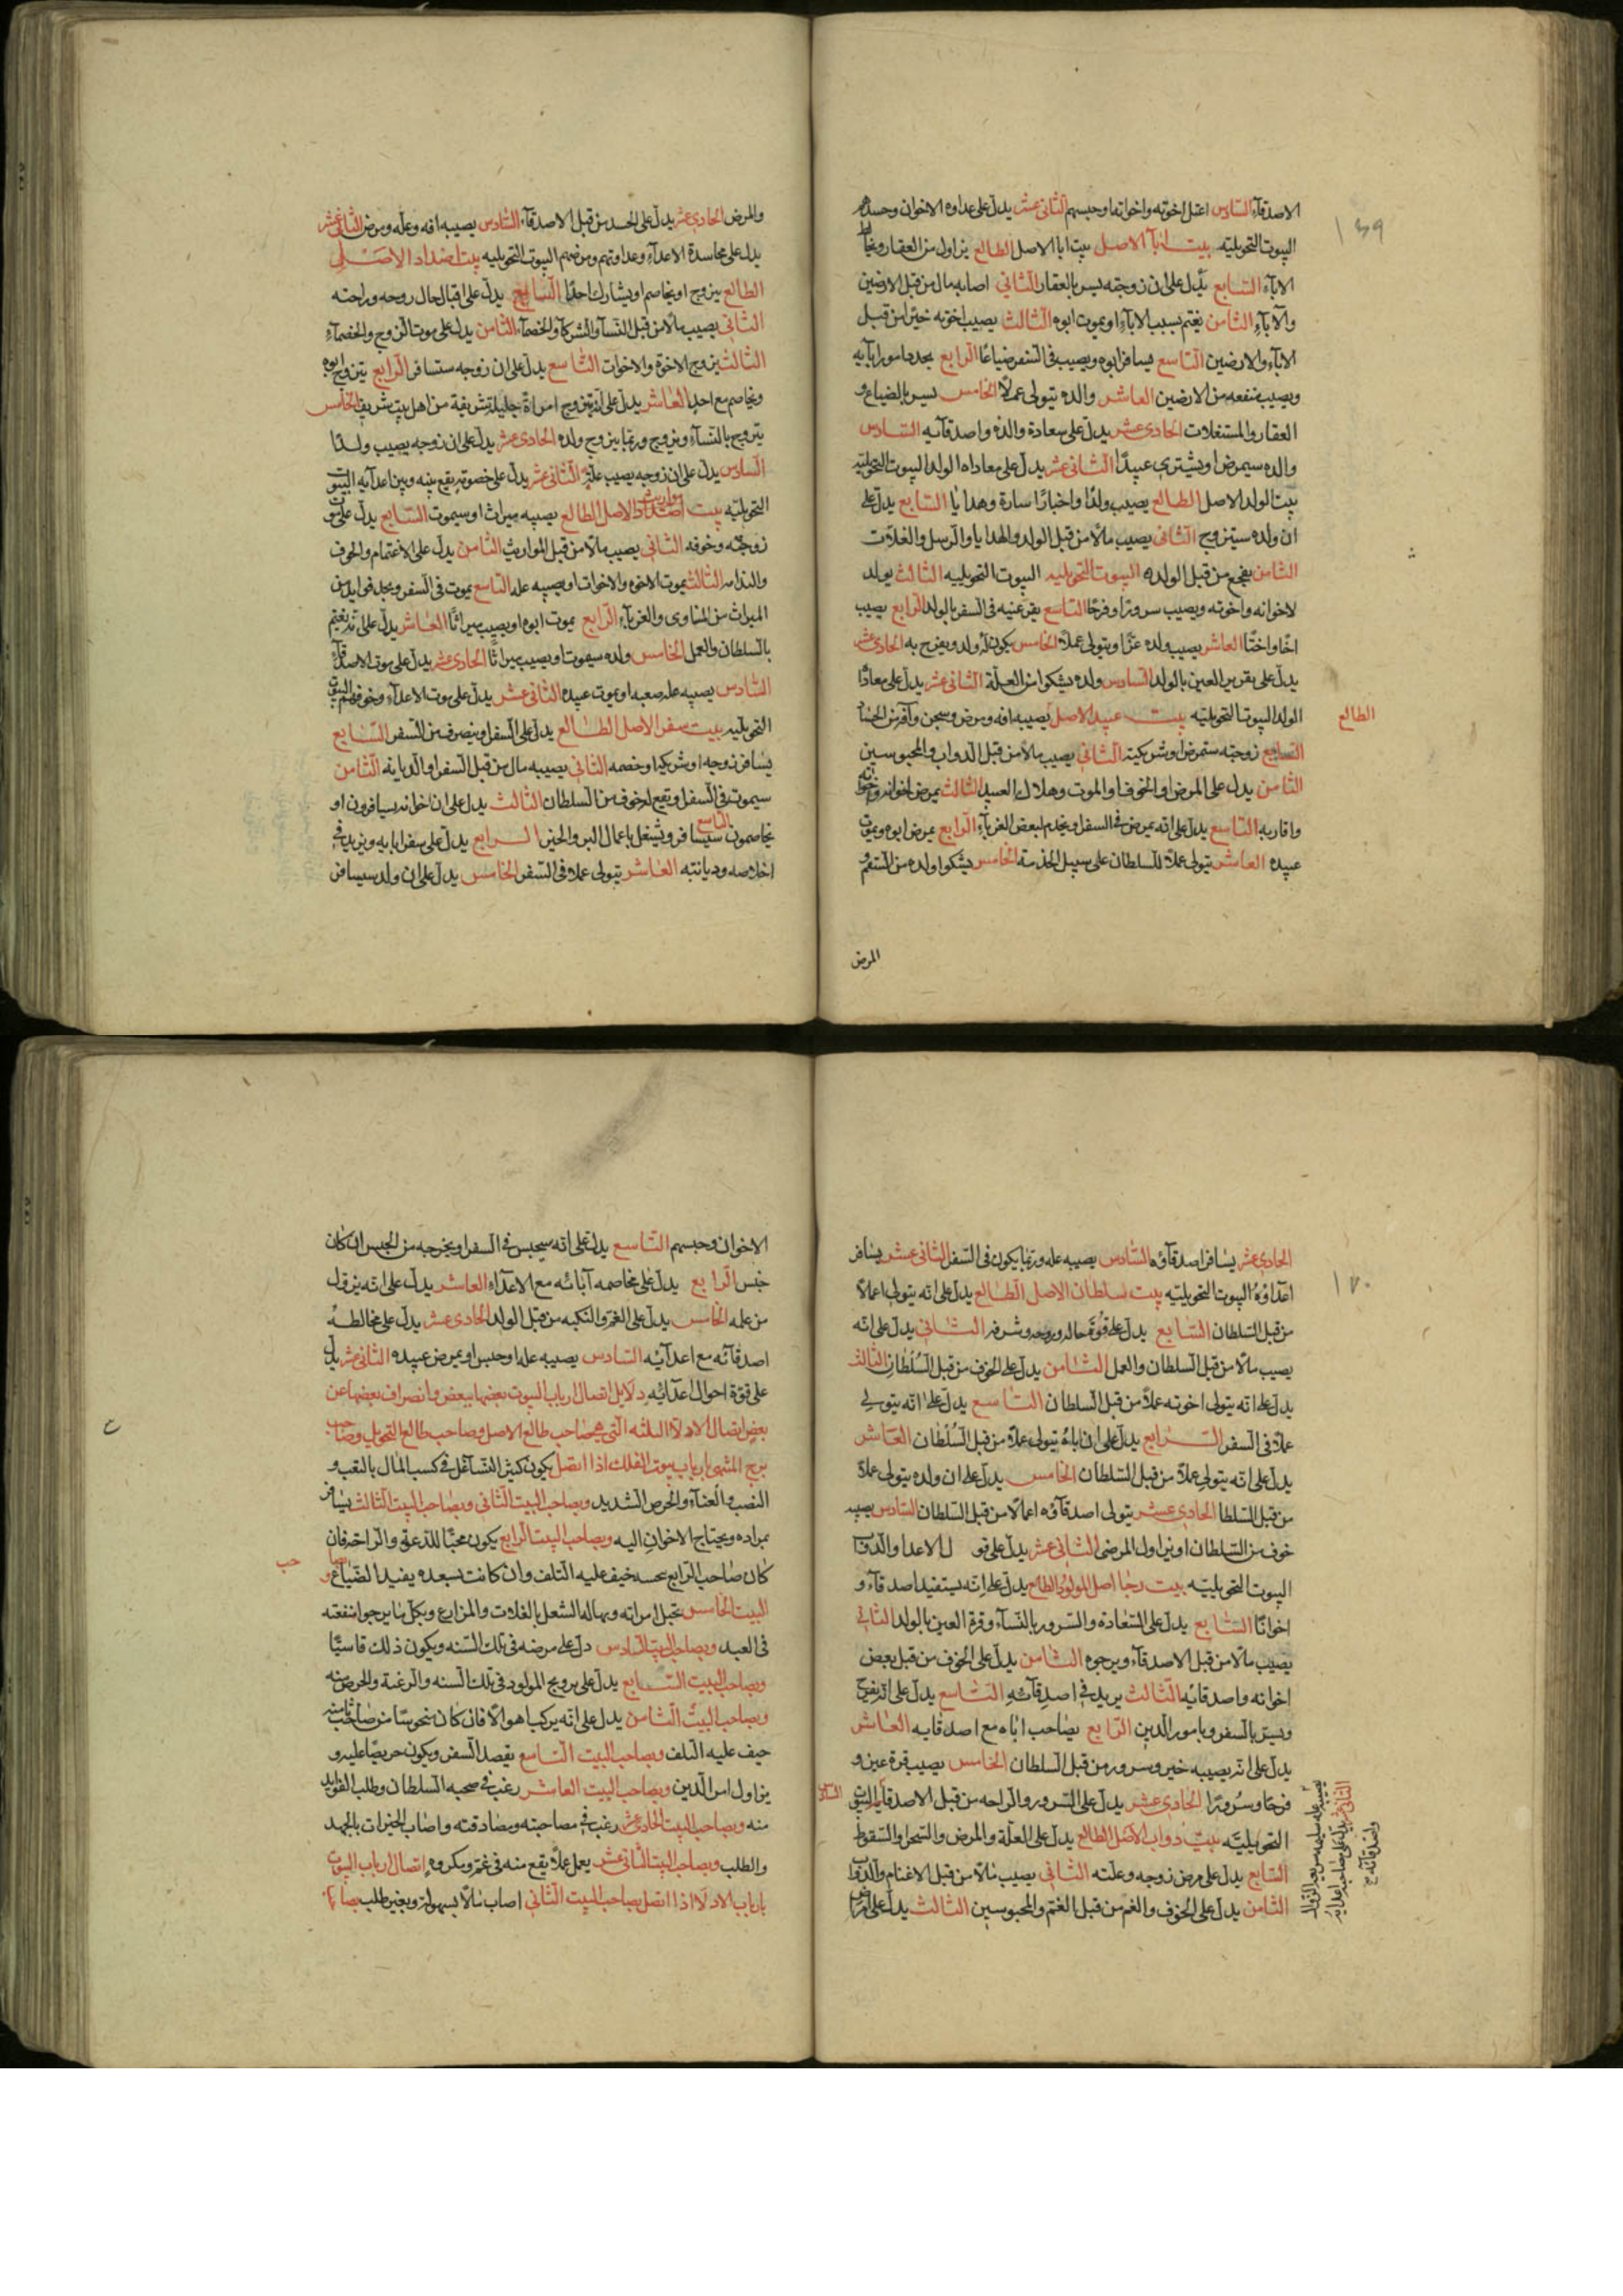 الاصدقاء السادس اعتل اخوته واخواتها وحبسهم الثاني عشر يدل على عداوه الاخوان وحسدهم
البيوت التحويليته بيت ابآ الاصل بيت ابا الاصل الطالع يزاول من العقار ويخاصم
الابآء السابع يدل على ان زوجته يسر بالعقار الثاني اصابه مال من قبل الارضين
والابآء الثامن يغتم بسبب الاباء او يموت ابوه الثالث يصيب اخوته خيرا من قبل
الابآء والارضين التاسع يسافر ابوه ويصيب في السفر ضياعا الرابع يجدد امور ابآيه
ويصيب منفعه من الارضين العاشر والده يتولى عملا الخامس يسر بالضياع و
العقار والمستغلات الحادي عشر يدل على سعادة والده واصدقآيه السادس
والده سيمرض او يشتري عبيدا الثاني عشر يدل على معاداه الولد البيوت التحويليه
بيت الولد الاصل الطالع يصيب ولدا واخبارا سارة وهدايا السابع يدل على
ان ولده سيتزوج الثاني يصيب مالا من قبل الولد والهدايا والرسل والغلات
الثامن يفجع من قبل الولده البيوت التحويليه البيوت التحويلييه الثالث يولد
لاخوانه واخوته ويصيب سرورا وفرحا التاسع يقر عينيه في السفر بالولد الرابع يصيب
اخا واختا العاشر يصيب ولده عزا ويتولى عملا الخامس يكون له ولد ويفرح به الحادي عشر
يدل على تقرير العين بالولد السادس ولده يشكوا من العلة الثاني عشر يدل على معاداة
الولد البيوت التحويليته بيت عبيد الاصل يصيبه افه ومرض وسجن وآفة من
الطالع
السابع زوجته ستمرض او شريكته الثاني يصيب مالا من قبل الدواب والمحبوسين
الثامن يدل على المرض او الخوف او الموت وهلاك العبيد الثالث يمرض اخوانه
واقاربه التاسع يدل على انه يمرض في السفر او يخدم لبعض الغربآء الرابع يمرض ابوه ويموت
عبيده العاشر يتولى عملا للسلطان على سبيل الخدمة الخامس يشكوا ولده من السقم و
المرض
والمرض الحادي عشر يدل على الحسد من قبل الاصدقآء السادس يصيبه افه وعله ومرض الثاني عشر
يدل على محاسدة الاعدآء وعداوتهم ومرضهم البيوت التحويليه بيت اضداد الاصل
الطالع يتزوج او يخاصم او يشارك احدا السابع يدل على اقبال حال زوجه وراحته
الثاني يصيب مالا من قبل النسآ والشركآ والخصمآء الثامن يدل على موت الزوج والخصمآء
الثالث يزوج الاخوة والاخوات التاسع يدل على ان زوجه ستسافر الرابع يتزوج ابوه
ويخاصم مع احدا العاشر يدل على انه يتزوج امراة جليلة شريفة من اهل بيت شريف الخامس
يتزوج بالنسآء ويزوج وربما يزوج ولده الحادي عشر يدل على ان زوجه يصيب ولدا
السادس يدل على ان زوجه يصيب علة الثاني عشر يدل على خصومة يقع بينه وبين اعدآيه البيوت
التحويليته بيت اضداد الاصل الطالع يصيبه ميراث او سيموت السابع يدل على موت
زوجته وخوفه الثاني يصيب مالا من قبل المواريث الثامن يدل على الاغتمام والخوف
والندامه الثالث يموت الاخوه والاخوات او يصيبه عله التاسع يموت في السفر ويجد فوايد من
الميراث من المناوى والغربآء الرابع يموت ابوه او يصيب ميراثا العاشر يدل على انه يغتم
بالسلطان والعمل الخامس ولده سيموت او يصيب ميراثا الحادي عشر يدل على موت الاصدقآء
السادس يصيبه عله صعبه او يموت عبيده الثاني عشر يدل على موت الاعدآء وخوفهم البيوت
التحويليه بيت سفر الاصل الطالع يدل على السفر او ينصرف من السفر السابع
يسافر زوجه او شريكه او خصمه الثاني يصيبه مال من قبل السفر او الديانه الثامن
سيموت في السفر ويقع له خوف من السلطان الثالث يدل على ان اخوانه يسافرون او
يخاصمون التاسع سيسافر ويشتغل باعمال البر والخير الرابع يدل على سفر ابايه ويزيد في
اخلاصه وديانته العاشر يتولى عملا في السفر الخامس يدل على ان ولد سيسافر
الحادي عشر يسافر اصدقآؤه السادس يصيبه عله وربما يكون في السفر الثاني عشر يسافر
اعدآؤه البيوت التحويليته بيت سلطان الاصل الطالع يدل على انه يتولى اعمالا
من قبل السلطان السابع يدل على قوة حاله وروحه وشرفه الثاني يدل على انه
يصيب مالا من قبل السلطان والعمل الثامن يدل على الخوف من قبل السلطان الثالث
يدل على انه يتولى اخوته عملا من قبل السلطان التاسع يدل على انه يتولى
عملا في السفر الرابع يدل على ان اباه يتولى عملا من قبل السلطان العاشر
يدل على انه يتولى عملا من قبل السلطان الخامس يدل على ان ولده يتولى عملا
من قبل السلطا الحادي عشر يتولى اصدقآؤه اعمالا من قبل السلطان السادس يصيبه
خوف من السلطان او يزاول المرضى الثاني عشر يدل على الاعدا والدواب
البيوت التحويليته بيت رجا اصل المولود الطالع يدل على انه يستفيد اصدقآء و
اخوانا السابع يدل على السعادة والسرور بالنسآء وقرة العين بالولد الثاني
يصيب مالا من قبل الاصدقآء ويرجوه الثامن يدل على الخوف من قبل بعض
اخوانه واصدقايه الثالث يريد في اصدقآئه التاسع يدل على انه يفرح
ويسر بالسفر وبامور الدين الرابع يصاحب اباه مع اصدقايه العاشر
يدل على انه يصيبه خير وسرور من قبل السلطان الخامس يصيب قرة عين و
فرحا وسرورا الحادي عشر يدل على السرور والراحه من قبل الاصدقآء البيوت
التحويليته بيت دواب الاصل الطالع يدل على العلة والمرض والسحر والسقوط
السابع يدل على مرض زوجه وعلته الثاني يصيب مالا من قبل الاغنام والدواب
الثامن يدل على الخوف والغم من قبل الغنم والمحبوسين الثالث يدل على امراض
الاخوان وحبسهم التاسع يدل على انه سيحبس في السفر او يخرجه من الحبس ان كان
حبس الرابع يدل على مخاصمه آبائه مع الاعدآء العاشر يدل على انه يزول
من عمله الخامس يدل على الغم والنكبه من قبل الولد الحادي عشر يدل على مخالطة
اصدقآئه مع اعدآئه السادس يصيبه عله او حبس او يمرض عبيده الثاني عشر يدل
على قوة احوال اعدآئه دلايل اتصال ارباب البيوت بعضها ببعض وانصراف بعضها عن
بعض اتصال الادلا الثلثه التي هي صاحب طالع الاصل وصاحب طالع التحويل وصاحب
برج المنتهى بارباب بيوت الفلك اذا اتصل يكون كثير التشاغل في كسب المال بالتعب و
النصب والعنآء والحرص الشديد وبصاحب البيت الثاني وبصاحب البيت الثالث يسافر
بمراده ويحتاج الاخوان اليه وبصاحب البيت الرابع يكون محبا للدعة والراحة فان
كان صاحب الرابع نحسا خيف عليه التلف وان كانت سعده يفيد الضياع و
البيت الخامس تحبل امراته ويهاله الشغل بالغلات والمزارع وبكل ما يرجوا منفعته
في العبيد وبصاحب البيت السادس دل على مرضه في تلك السنه ويكون ذلك قاسيا
وبصاحب البيت السابع يدل على تزويج المولود في تلك السنه والرغبة والحرص منه
وبصاحب البيت الثامن يدل على انه يركب اهوالا فان كان منحوسا من صاحب ثامنه
خيف عليه التلف وبصاحب البيت التاسع يقصد السفر ويكون حريصا عليه و
يزاول امر الدين وبصاحب البيت العاشر رغب في صحبه السلطان وطلب الفوايد
منه وبصاحب البيت الحادي عشر رغب في مصاحبته ومصادقته واصاب الخيرات بالجهد
والطلب وبصاحب البيت الثاني عشر يعمل عملا يقع منه في غم ومكروه اتصال ارباب البيوت
بارباب الادلا اذا اتصل صاحب البيت الثاني اصاب مالا بسهولة وبغير طلب